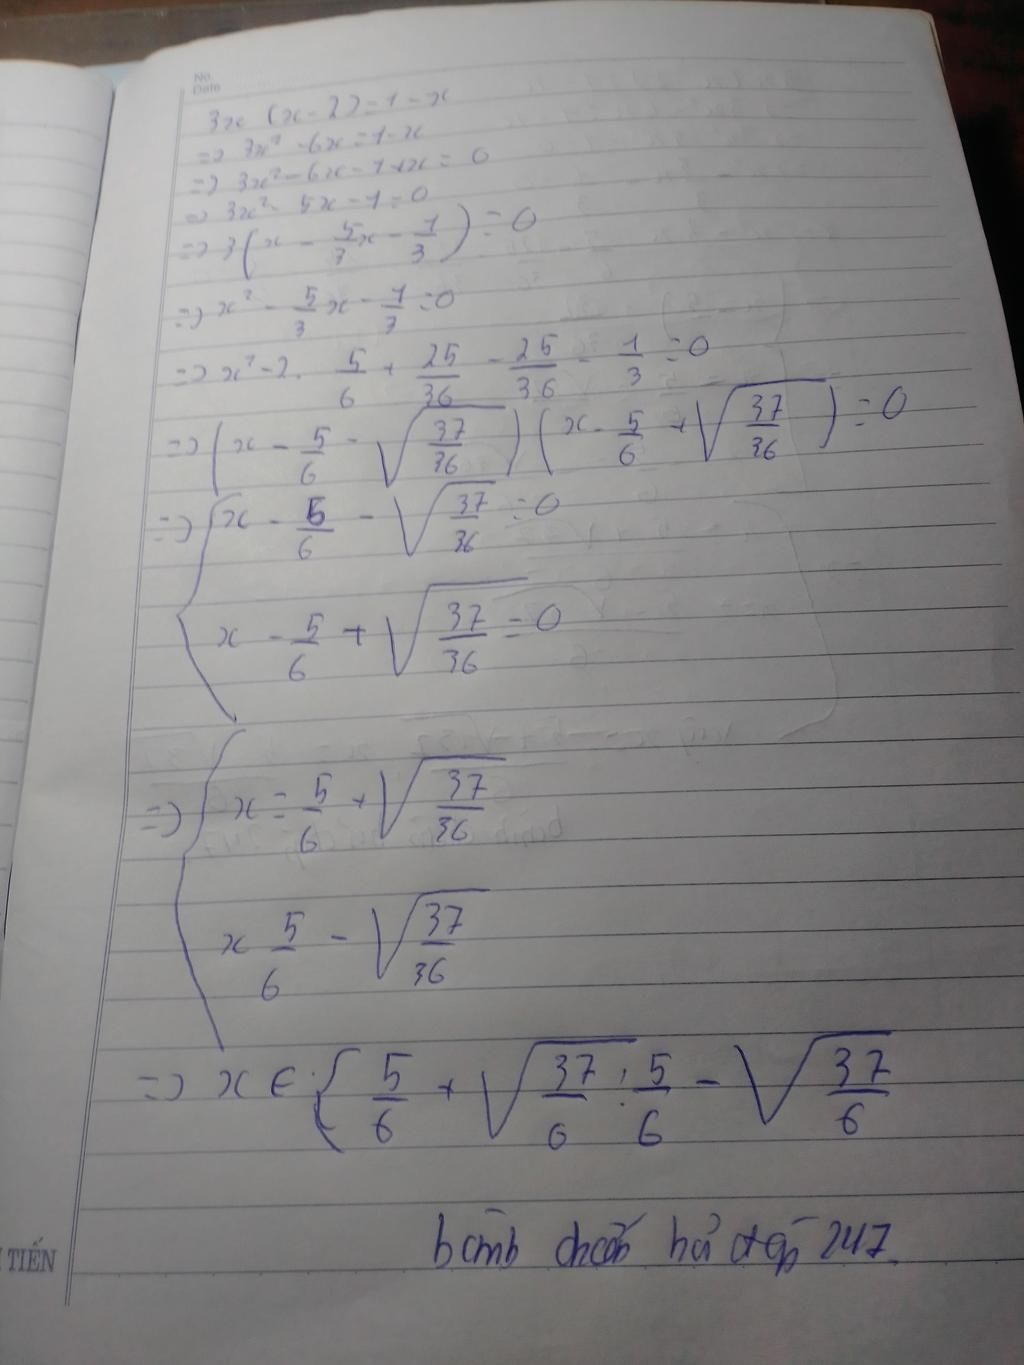 No.
Date
3x (x - 2) = 1 - x
=> 3x² - 6x = 1 - x
=> 3x² - 6x - 1 + x = 0
=> 3x² - 5x - 1 = 0
=> 3(x - 5/3 x - 1/3) = 0
=> x² - 5/3 x - 1/3 = 0
=> x² - 2. 5/6 + 25/36 - 25/36 - 1/3 = 0
=> (x - 5/6 - √37/36) (x - 5/6 + √37/36) = 0
=> { x - 5/6 - √37/36 = 0
x - 5/6 + √37/36 = 0
=> { x = 5/6 + √37/36
x 5/6 - √37/36
=> x ∈ { 5/6 + √37/6 ; 5/6 - √37/6
TIẾN
247